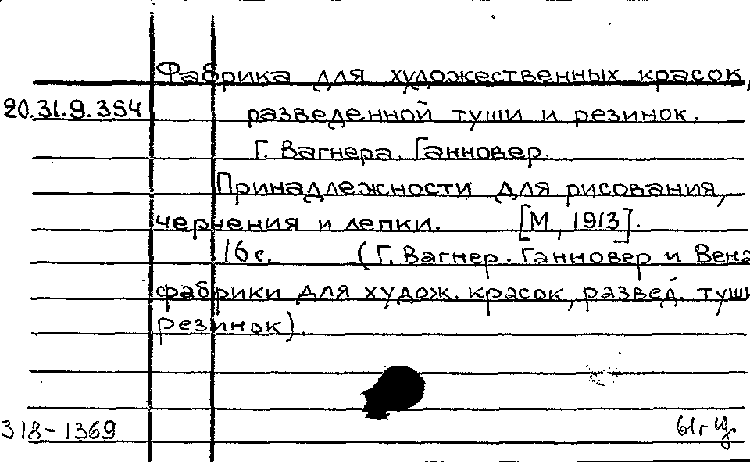 Фабрика для художественных красок,
20.31.9.354 разведенной туши и резинок.
Г. Вагнера. Ганновер.
Принадлежности для рисования,
черчения и лепки. [М, 1913].
16 с. (Г. Вагнер. Ганновер и Вена
фабрики для худож. красок, развед. туши
резинок).
318-1369 61г